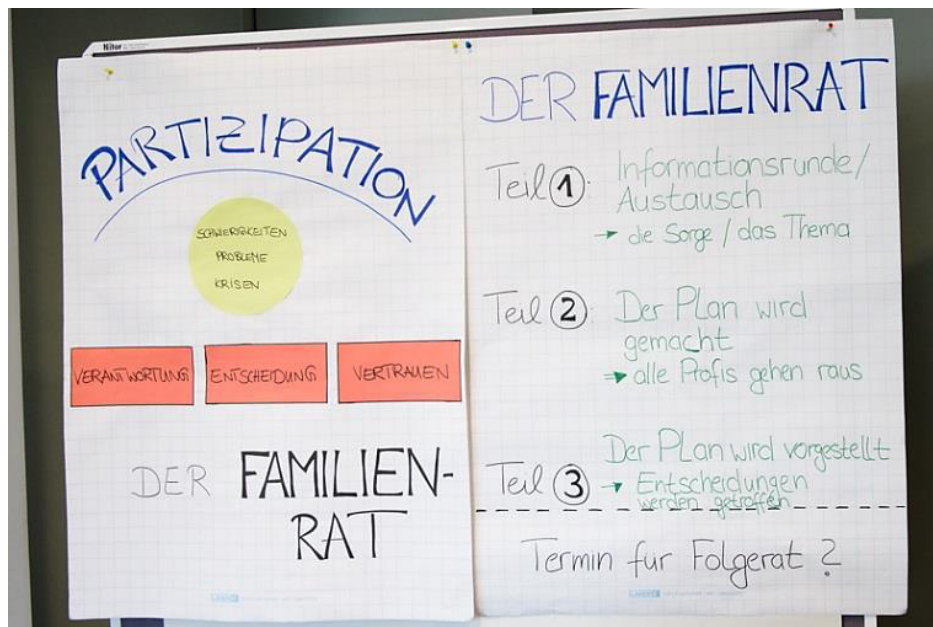 Nitor
PARTIZIPATION
SCHWIERIGKEITEN
PROBLEME
KRISEN
VERANTWORTUNG
ENTSCHEIDUNG
VERTRAUEN
DER FAMILIEN-
RAT
DER FAMILIENRAT
Teil 1: Informationsrunde/
Austausch
→ die Sorge / das Thema
Teil 2: Der Plan wird
gemacht
→ alle Profis gehen raus
Teil 3 Der Plan wird vorgestellt
→ Entscheidungen
werden getroffen
Termin für Folgerat ?